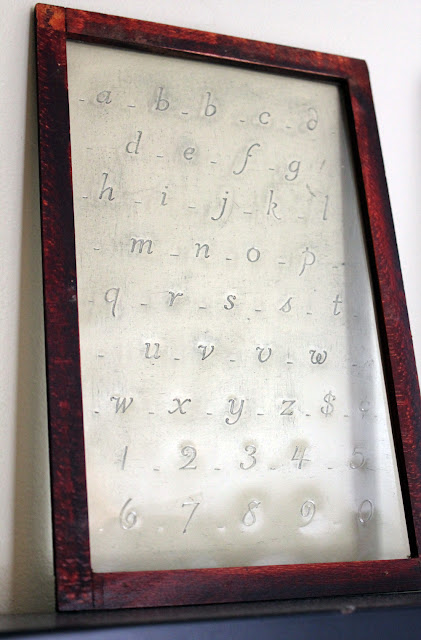 - a - b - b - c - d
- d - e - f - g
- h - i - j - k - l
- m - n - o - p -
- q - r - s - s - t
- u - v - v - w -
- w - x - y - z - $ - ¢
1 - 2 - 3 - 4 - 5
- 6 - 7 - 8 - 9 - 0